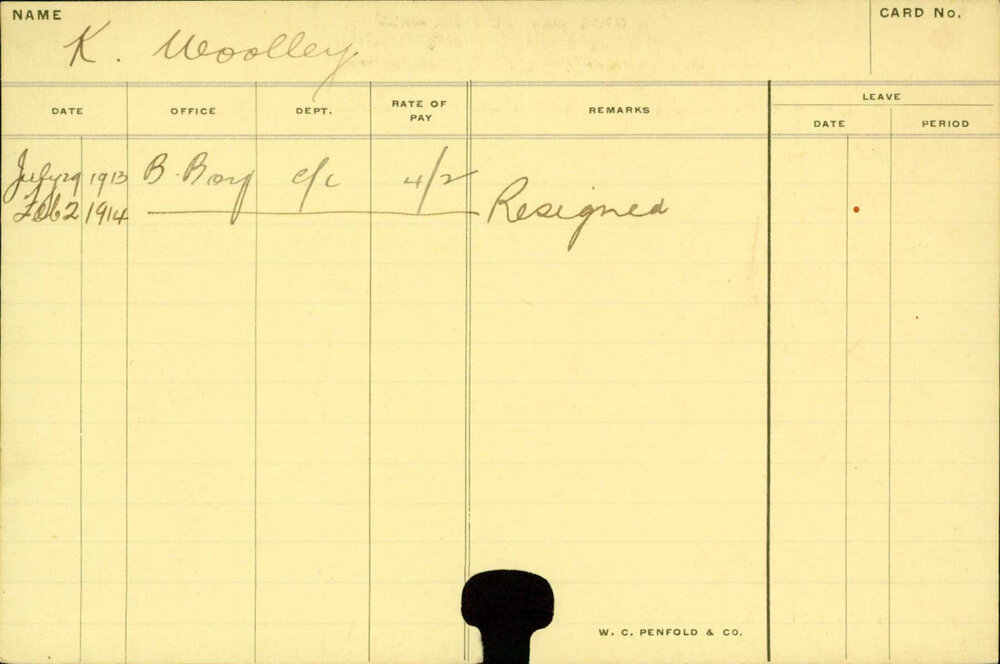 NAME
K. Woolley
CARD No.
DATE OFFICE DEPT. RATE OF PAY REMARKS LEAVE
DATE PERIOD
July 29 1913 B. Boy c/c 4/2
Feb 2 1914 Resigned
W. C. PENFOLD & CO.